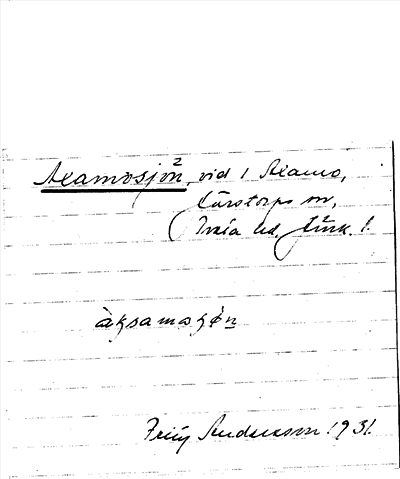 Axamosjön², vid 1 Axamo,
Järstorps sn,
Tveta hd, Jönk. l.
àksamaʃǿn
Fritz Andersson 1931.